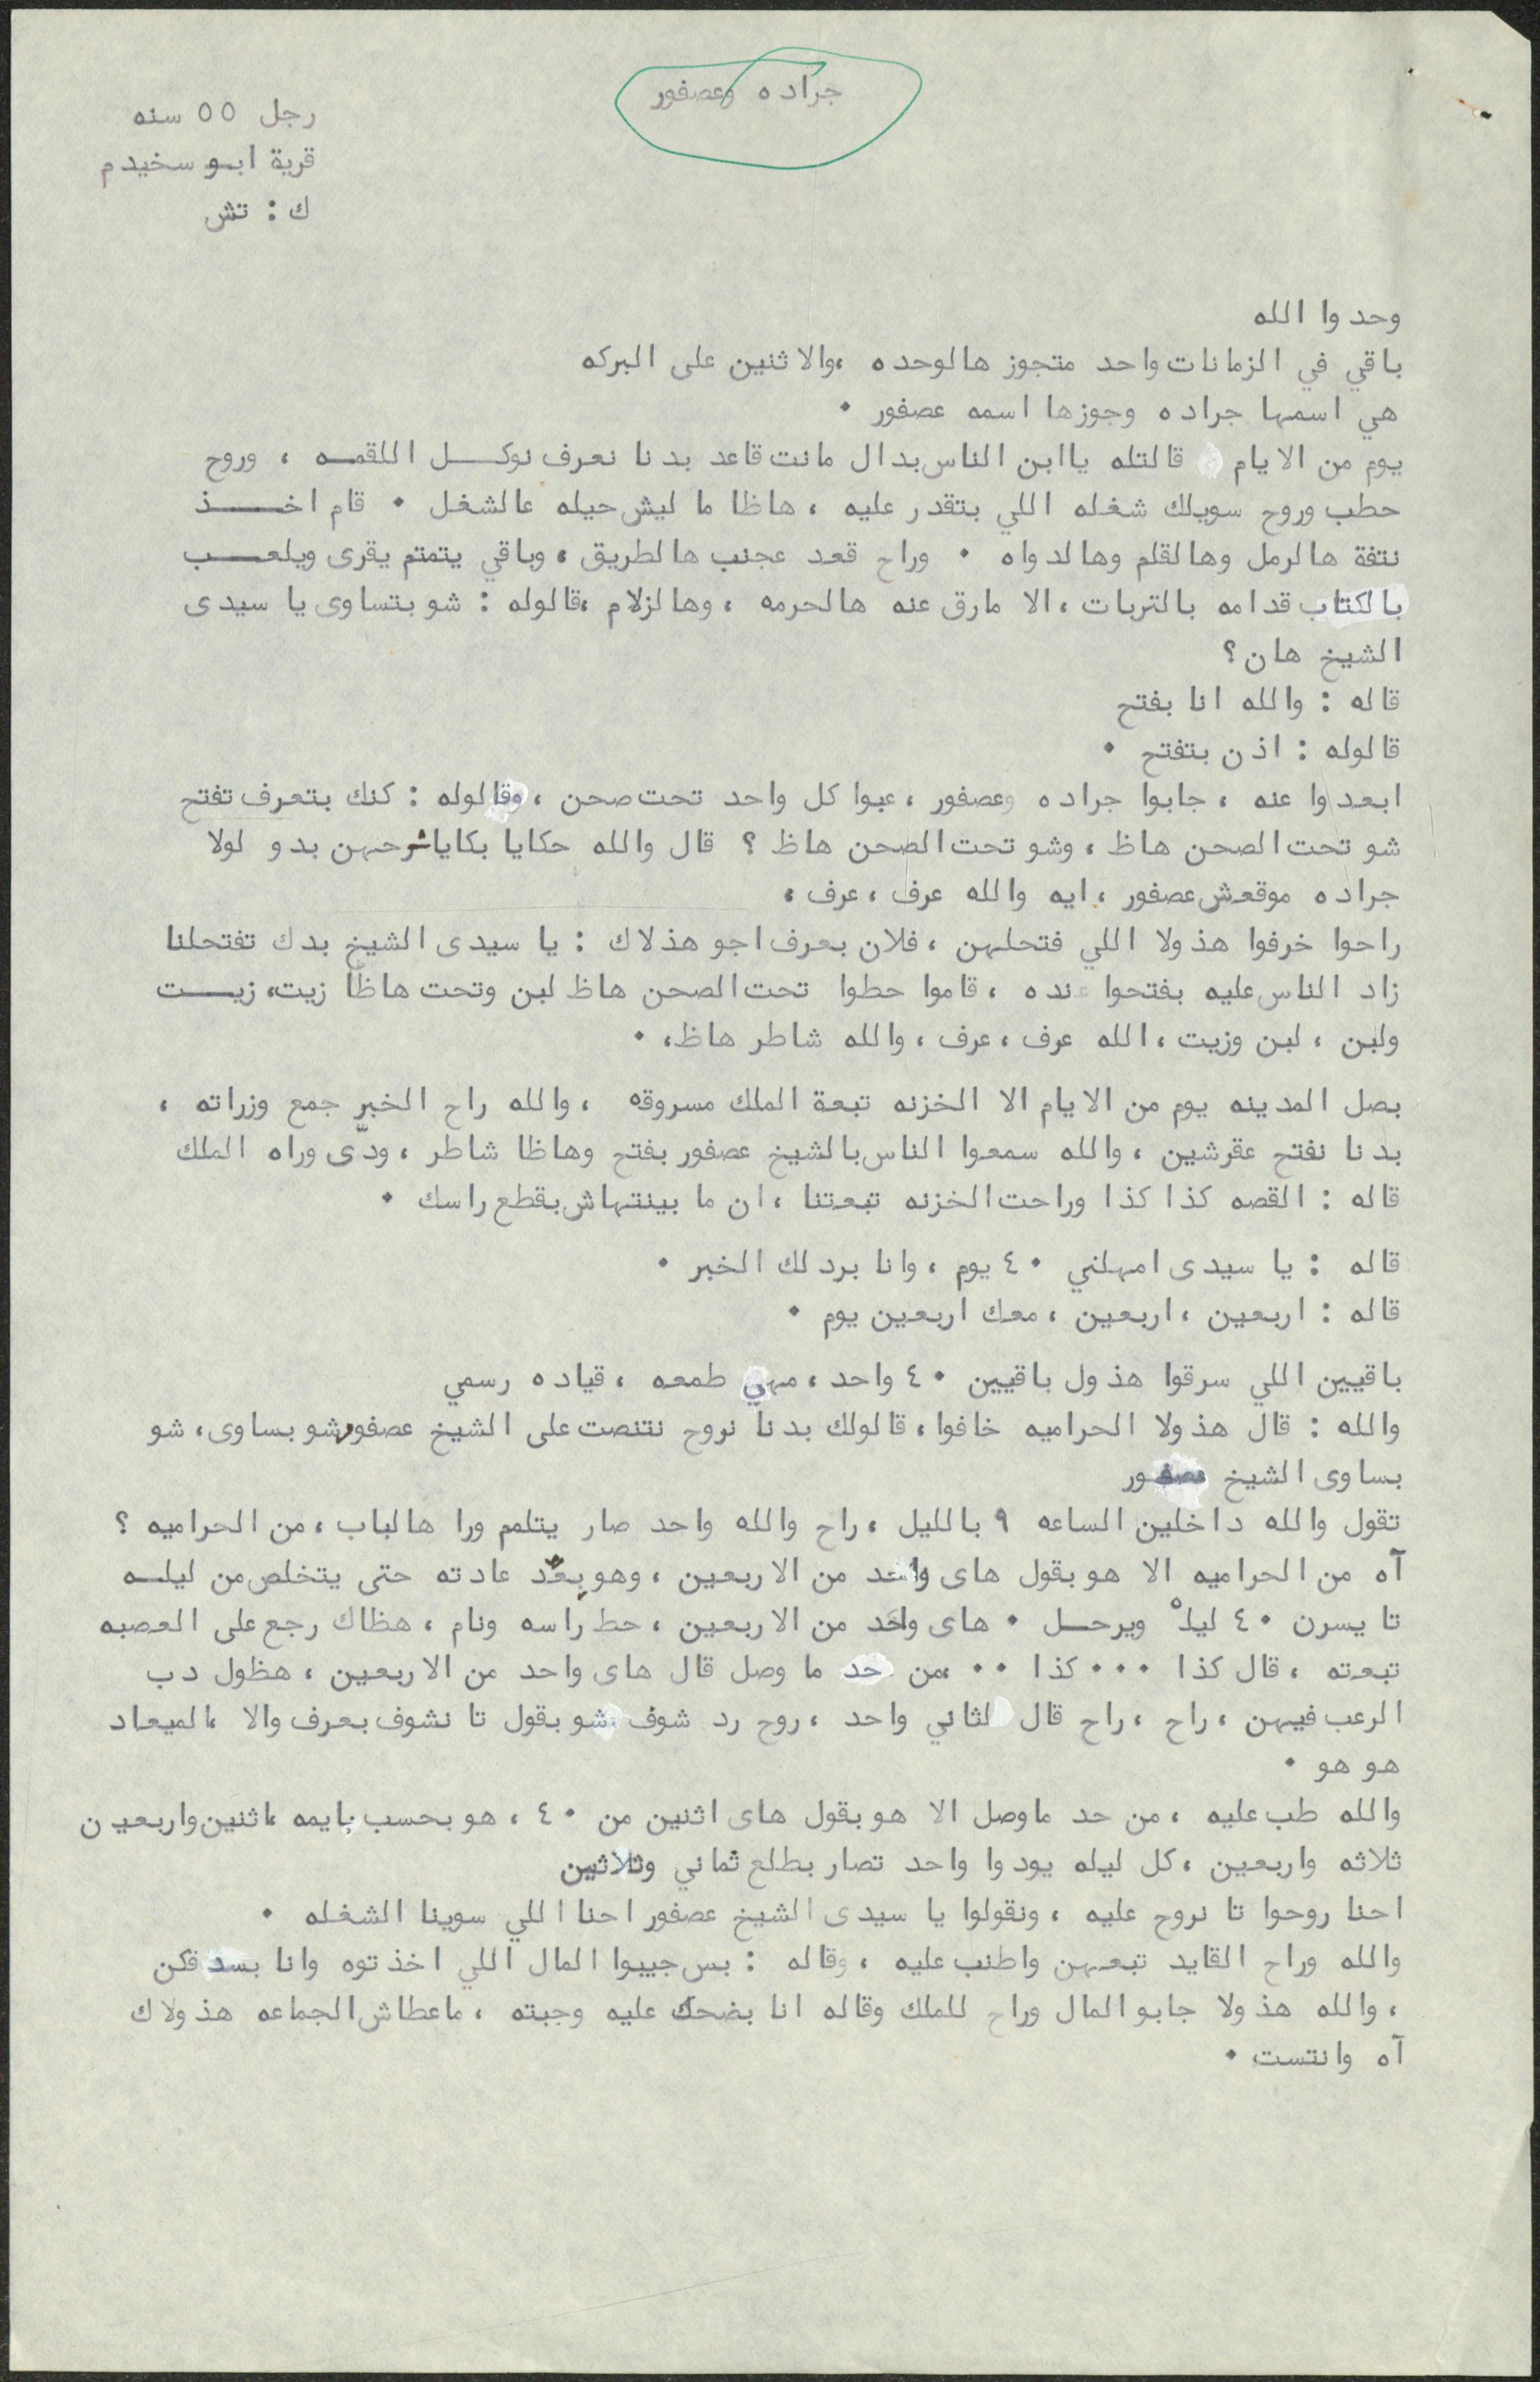 جراده وعصفور
رجل ٥٥ سنه
قرية ابو سخيدم
ك : تش
وحدوا الله
باقي في الزمانات واحد متجوز هالوحده ،والاثنين على البركه
هي اسمها جراده وجوزها اسمه عصفور ٠
يوم من الايام قالتله ياابن الناس بدال مانت قاعد بدنا نعرف نوكل اللقمه ، وروح
حطب وروح سويلك شغله اللي بتقدر عليه ، هاظا ما ليش حيله عالشغل ٠ قام اخذ
نتفة هالرمل وهالقلم وهالدواه ٠ وراح قعد عجنب هالطريق ، وباقي يتمتم يقرى ويلعب
بالكتاب قدامه بالتربات ، الا مارق عنه هالحرمه ، وهالزلام ،قالوله : شو بتساوى يا سيدى
الشيخ هان ؟
قاله : والله انا بفتح
قالوله : اذن بتفتح ٠
ابعدوا عنه ، جابوا جراده وعصفور ، عبوا كل واحد تحت صحن ، وقالوله : كنك بتعرف تفتح
شو تحت الصحن هاظ ، وشو تحت الصحن هاظ ؟ قال والله حكايا بكايا شرحهن بدو لولا
جراده موقعش عصفور ، ايه والله عرف ، عرف ،
راحوا خرفوا هذولا اللي فتحلهن ، فلان بعرف اجو هذلاك : يا سيدى الشيخ بدك تفتحلنا
زاد الناس عليه بفتحوا عنده ، قاموا حطوا تحت الصحن هاظ لبن وتحت هاظا زيت، زيت
ولبن ، لبن وزيت ، الله عرف ، عرف ، والله شاطر هاظ، ٠
بصل المدينه يوم من الايام الا الخزنه تبعة الملك مسروقه ، والله راح الخبر جمع وزراته ،
بدنا نفتح عقرشين ، والله سمعوا الناس بالشيخ عصفور بفتح وهاظا شاطر ، ودّى وراه الملك
قاله : القصه كذا كذا وراحت الخزنه تبعتنا ، ان ما بينتهاش بقطع راسك ٠
قاله : يا سيدى امهلني ٤٠ يوم ، وانا بردلك الخبر ٠
قاله : اربعين ، اربعين ، معك اربعين يوم ٠
باقيين اللي سرقوا هذول باقيين ٤٠ واحد ، مهي طمعه ، قياده رسمي
والله : قال هذولا الحراميه خافوا ، قالولك بدنا نروح نتنصت على الشيخ عصفور شو بساوى، شو
بساوى الشيخ عصفور
تقول والله داخلين الساعه ٩ بالليل ، راح والله واحد صار يتلمم ورا هالباب ، من الحراميه ؟
آه من الحراميه الا هو بقول هاى واحد من الاربعين ، وهو بِعُد عادته حتى يتخلص من ليله
تا يسرن ٤٠ ليله ويرحل ٠ هاى واحد من الاربعين ، حط راسه ونام ، هظاك رجع على العصبه
تبعته ، قال كذا ٠٠٠ كذا ٠٠ ،من حد ما وصل قال هاى واحد من الاربعين ، هظول دب
الرعب فيهن ، راح ، راح قال لثاني واحد ، روح رد شوف شو بقول تا نشوف بعرف والا ،الميعاد
هو هو ٠
والله طب عليه ، من حد ماوصل الا هو بقول هاى اثنين من ٤٠ ، هو بحسب بايمه ،اثنين واربعين
ثلاثه واربعين ، كل ليله يودوا واحد تصار بطلع ثماني وثلاثين
احنا روحوا تا نروح عليه ، ونقولوا يا سيدى الشيخ عصفور احنا اللي سوينا الشغله ٠
والله وراح القايد تبعهن واطنب عليه ، وقاله : بس جيبوا المال اللي اخذتوه وانا بسدقكن
، والله هذولا جابو المال وراح للملك وقاله انا بضحك عليه وجبته ، ماعطاش الجماعه هذولاك
آه وانتست ٠